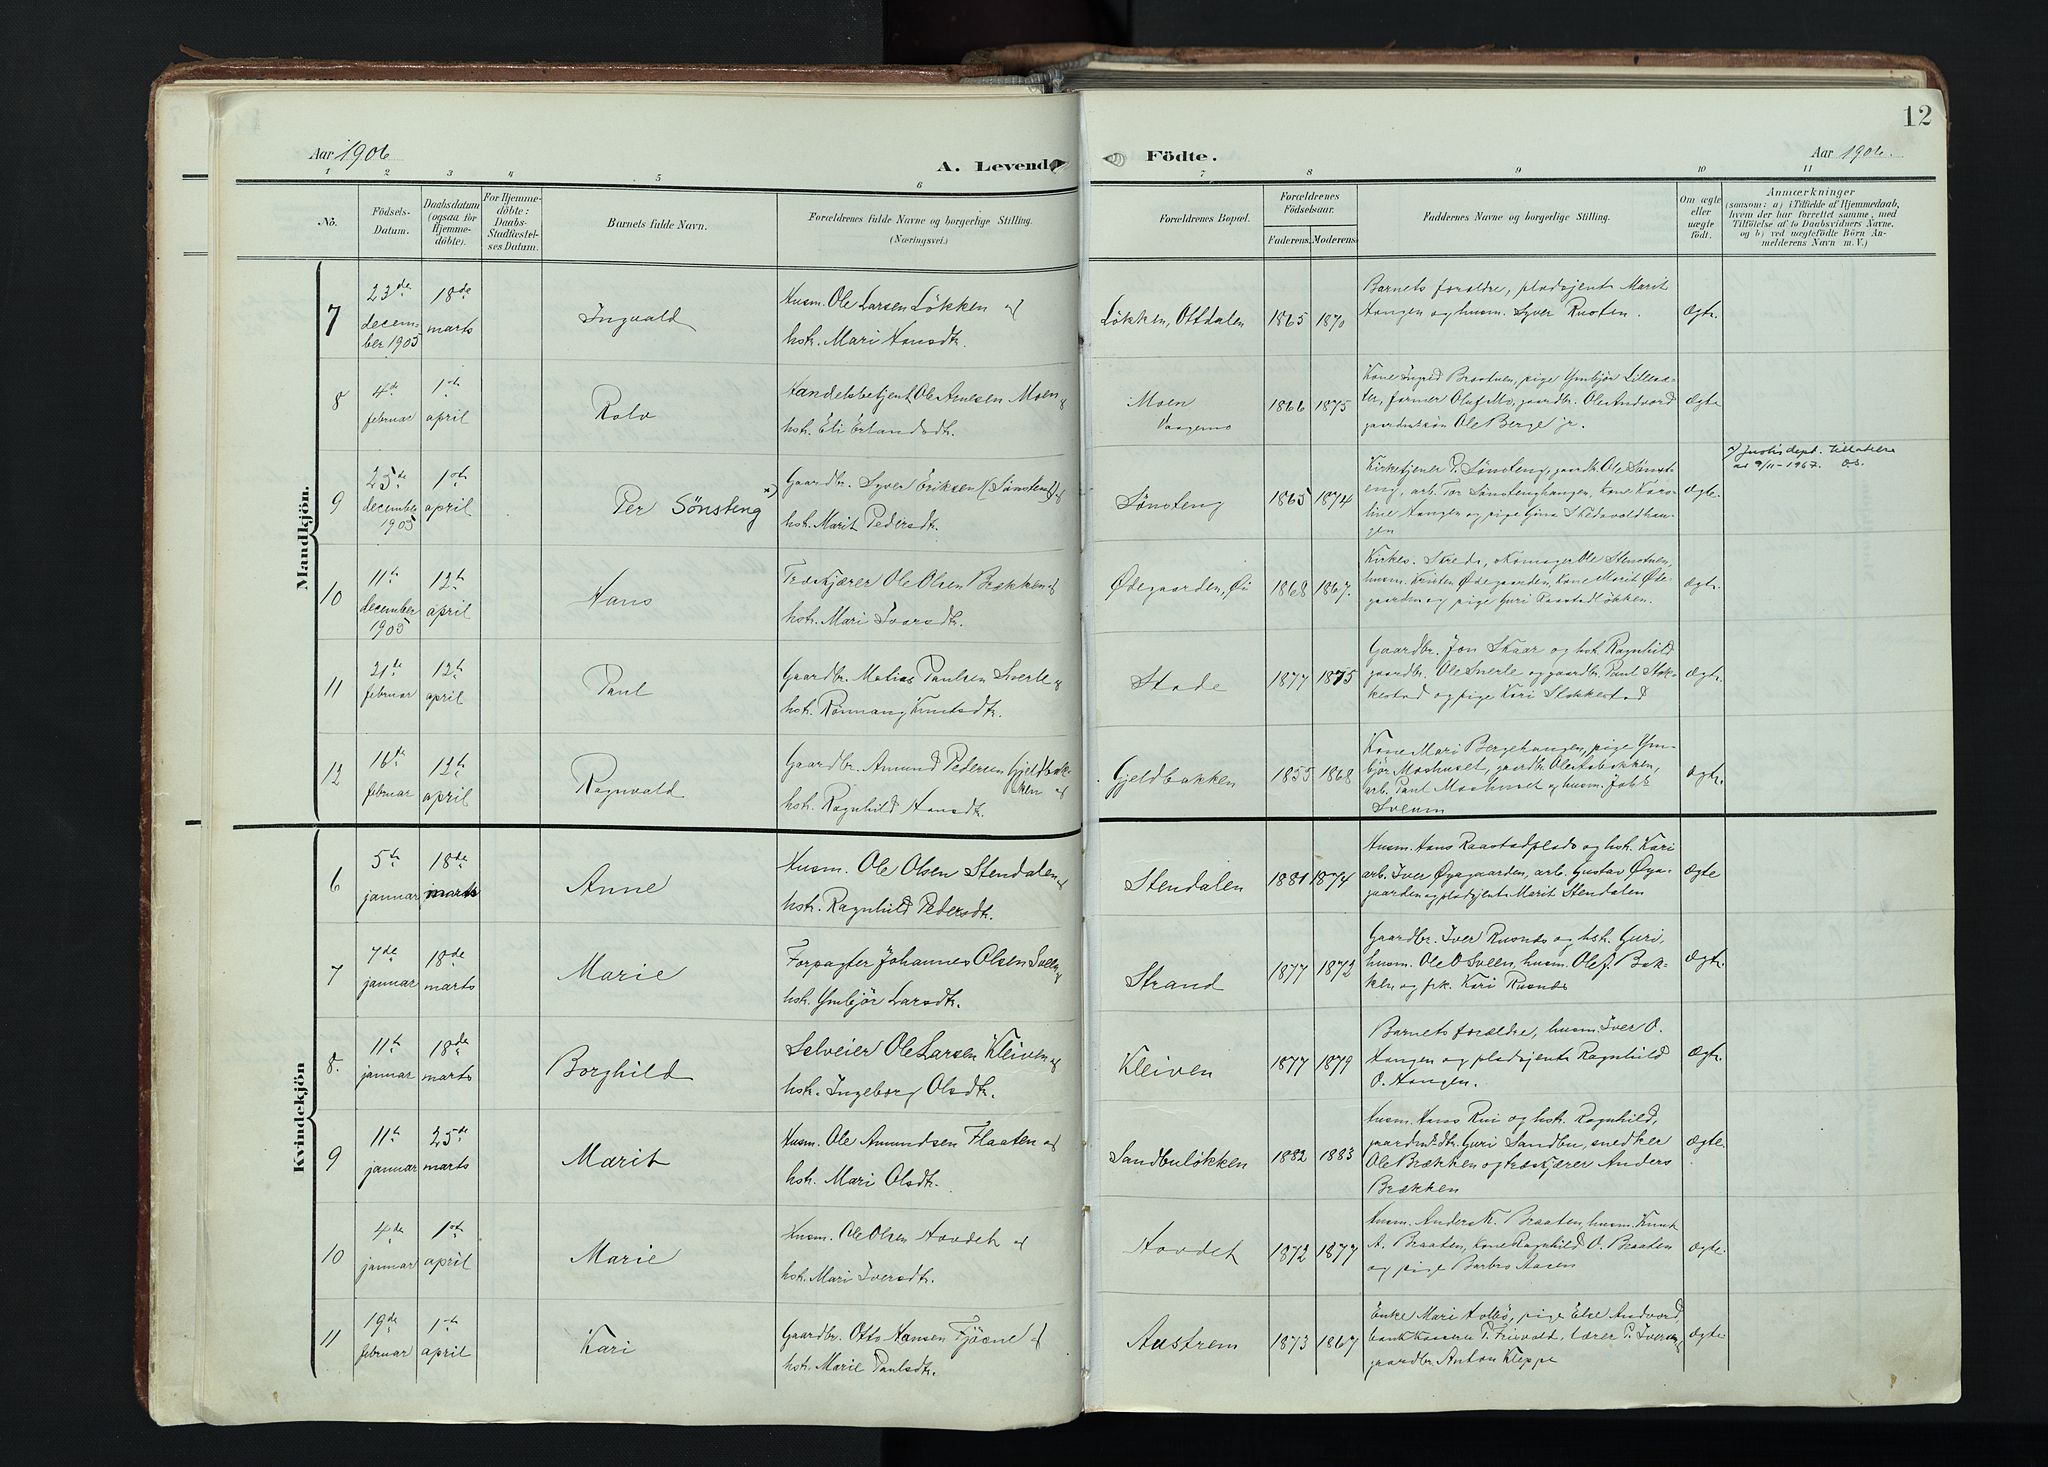 Aar 1906
A. Levende
Födte.
Aar 1906.
12
1 2 3 4 5 6 7 8 9 10 11
No.
Födsels-
Datum.
Daabsdatum
(ogsaa for
Hjemme-
döbte).
For Hjemme-
döbte:
Daabs-
Stadfæstel-
ses Datum.
Barnets fulde Navn.
Forældrenes fulde Navne og borgerlige Stilling.
(Næringsvei.)
Forældrenes Bopæl.
Forældrenes
Födselsaar.
Faderens. Moderens.
Faddernes Navne og borgerlige Stilling.
Om ægte
eller
uægte
født.
Anmærkninger
(saasom: a) i Tilfælde af Hjemmedaab,
hvem der har forrettet samme, med
Tilföielse af to Daabsvidners Navne,
og b) ved uægtefödte Börn An-
melderens Navn m. V.)
Mandkjön.
7
23de
decem-
ber 1905
18de
marts
Ingvald
Husm. Ole Larsen Løkken og
hstr. Mari Hansdtr.
Løkken, Ottdalen
1865 1870
Barnets forældre, pladsjent Marit
Haugen og husm. Syver Rusten.
Ægte.
8
4de
februar
1ste
april
Rolv
Handelsbetjent Ole Arnesen Moen og
hstr. Eli Erlandsdtr.
Moen
Vaagemo
1866 1875
Kone Ingrid Braaten, pige Ymbjør Lillesæ-
ter, farmer Oluf Mo, gaardbr. Ole Andvord
gaardmandssøn Ole Berge jr.
Ægte
9
25de
december
1905
1ste
april
Per Sønsteng *)
Gaardbr. Syver Eriksen (Sønsteng) og
hstr. Marit Pedersdtr.
Sønsteng
1865 1874
Kirketjener P. Sønsteng, gaardbr. Ole Sønst-
eng, arb. Tor Sønstenghaugen, Kone Karo-
line Haugen og pige Gina Skedsvoldhau-
gen
Ægte.
*) Justisdept. tillatelse
av 9/11-1967. OS.
10
11te
december
1905
12te
april
Hans
Træskjærer Ole Olsen Brækken og
hstr. Mari Ivarsdtr.
Ødegaarden, Øi
1868 1867.
Kirkes. Skrede, skomager Ole Stenstuen,
husm. Kristen Ødegaarden, Kone Marit Øde-
gaarden og pige Guri Raastadløkken.
Ægte.
11
21de
februar
12te
april
Paul
Gaardbr. Matias Paulsen Sverle og
hstr. Rønnaug Knutsdtr.
Stade
1877 1875
Gaardbr. Jon Skaar og hstr. Ragnhild
gaardbr. Ole Sverle og gaardbr. Paul Stok-
kestad og pige Kari Stokkestad
Ægte.
12
16de
februar
12te
april
Ragnvald
Gaardbr. Amund Pedersen Gjeldbak-
ken og
hstr. Ragnhild Hansdtr.
Gjeldbakken
1855 1868
Kone Mari Bergehaugen, pige Ym-
bjør Moshuset, gaardbr. Ole Aabakken,
arb. Paul Moshuset og husm. Jakob
Sveum
Ægte.
Kvindekjön
6
5te
januar
18de
marts
Anne
Husm. Ole Olsen Stendalen og
hstr. Ragnhild Pedersdtr.
Stendalen
1881 1874
Husm. Hans Raastadplads og hstr. Kari
arb. Iver Øygaarden, arb. Gustav Øyg-
gaarden og pladsjente Marit Stendalen
Ægte
7
7de
januar
18de
marts
Marie
Forpagter Johannes Olsen Sveen og
hstr. Ymbjør Larsdtr.
Strand
1877 1872
Gaardbr. Iver Rusnes og hstr. Guri,
husm. Ole O. Sveen, husm. Ole J. Bak-
ken og frk. Kari Rusnes
Ægte.
8.
11te
januar
18de
marts
Borghild
Selveier Ole Larsen Kleiven og
hstr. Ingeborg Olsdtr.
Kleiven
1877 1879
Barnets forældre, husm. Iver O.
Haugen og pladsjente Ragnhild
O. Haugen.
Ægte.
9
11te
januar
25de
marts
Marit
Husm. Ole Amundsen Flaaten og
hstr. Mari Olsdtr.
Sandbuløkken
1882 1883
Husm. Hans Rui og hstr. Ragnhild,
gaardmdtr. Guri Sandbu, snedker
Ole Brækken og træskjærer Anders
Brækken
Ægte.
10
4de
januar
1ste
april
Marie
Husm. Ole Olsen Hovdet og
hstr. Mari Iversdtr.
Hovdet
1872 1877
Husm. Anders K. Braaten, husm. Knut
A. Braaten, Kone Ragnhild O. Braaten
og pige Barbro Aasen
Ægte.
11
19de
februar
1ste
april
Kari
Gaardbr. Otto Hansen Fjösne og
hstr. Marie Paulsdtr.
Austrem
1873 1867
Enke Mari Holbø, pige Else Andvord,
bankkasserer P. Frisvold, lærer P. Iversen,
gaardbr. Anton Kleppe
Ægte.